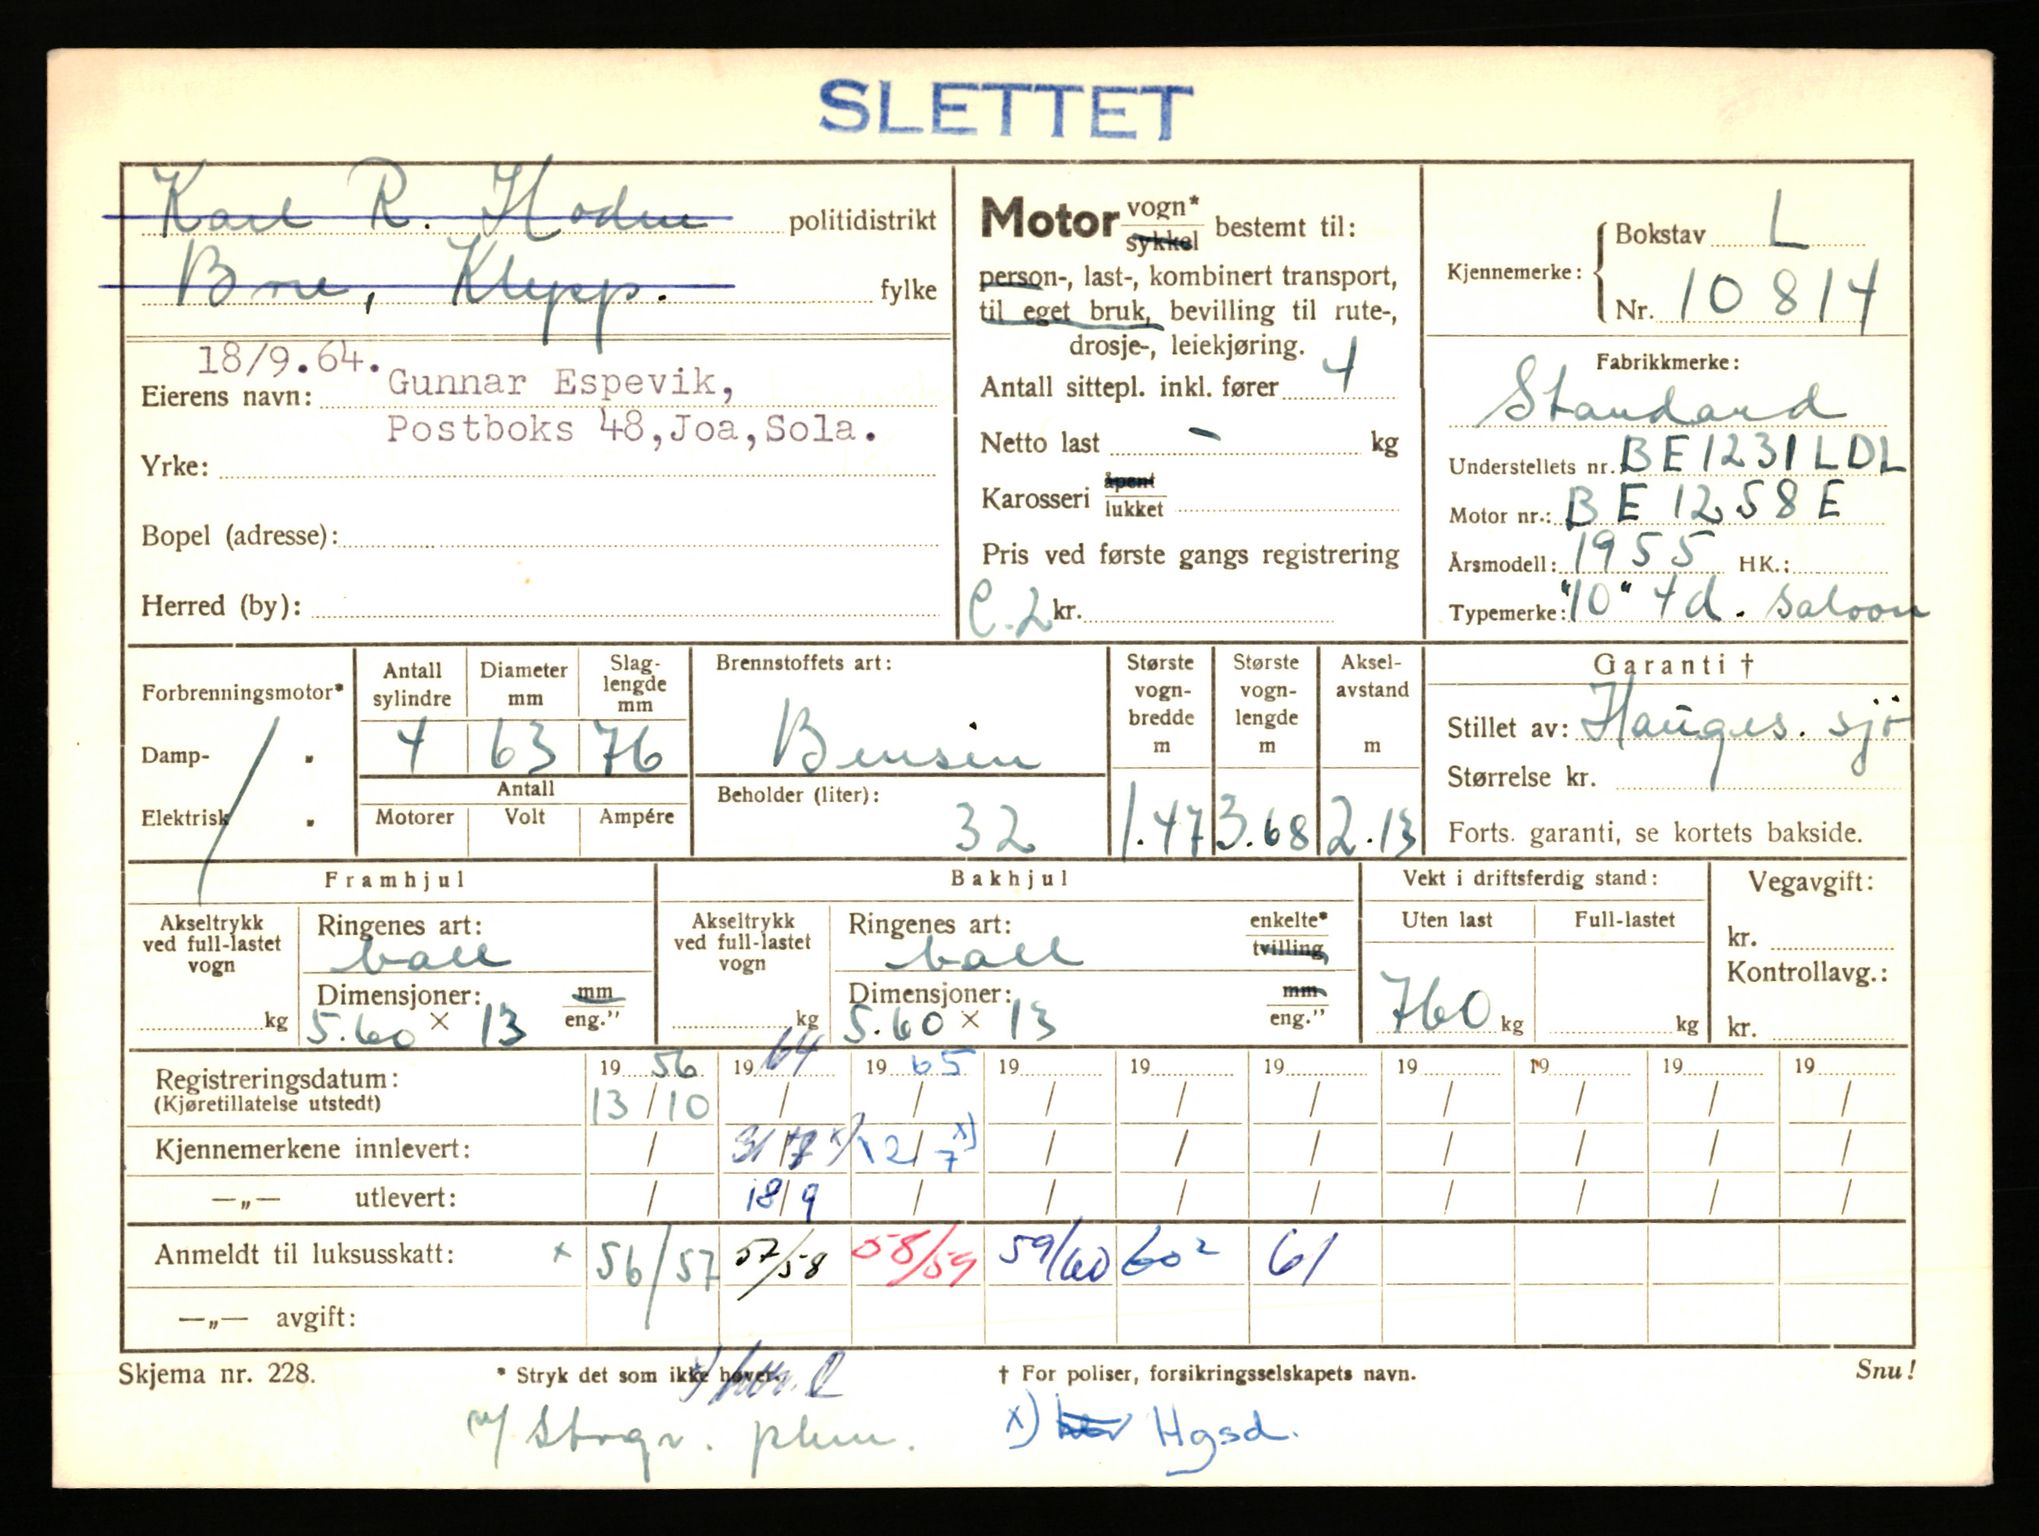 SLETTET
Karl R. Hodne politidistrikt
Bore, Klepp. fylke
18/9.64.
Eierens navn: Gunnar Espevik,
Postboks 48, Joa, Sola.
Yrke:
Bopel (adresse):
Herred (by):
Motor vogn* sykkel bestemt til:
person-, last-, kombinert transport,
til eget bruk, bevilling til rute-,
drosje-, leiekjøring.
Antall sittepl. inkl. fører 4
Netto last - kg
Karosseri åpent lukket
Pris ved første gangs registrering
C.2 kr.
Kjennemerke: Bokstav L
Nr. 10814
Fabrikkmerke:
Standard
Understellets nr. BE1231LDL
Motor nr.: BE1258E
Årsmodell: 1955 HK.:
Typemerke: "10" 4d. saloon
Forbrenningsmotor*
Damp- "
Elektrisk "
Antall sylindre 4
Diameter mm 63
Slag-lengde mm 76
Antall
Motorer Volt Ampére
Brennstoffets art:
Bensin
Beholder (liter):
32
Største vogn-bredde m 1.47
Største vogn-lengde m 3.68
Aksel-avstand m 2.13
Garanti †
Stillet av: Hauges. sjø
Størrelse kr.
Forts. garanti, se kortets bakside.
Framhjul
Akseltrykk ved full-lastet vogn
kg
Ringenes art:
ball
Dimensjoner: mm eng."
5.60 × 13
Bakhjul
Akseltrykk ved full-lastet vogn
kg
Ringenes art: enkelte* tvilling
ball
Dimensjoner: mm eng."
5.60 × 13
Vekt i driftsferdig stand:
Uten last Full-lastet
760 kg kg
Vegavgift:
kr.
Kontrollavg.:
kr.
Registreringsdatum: 19 56 19 64 19 65 19 19 19 19 19 19 19
(Kjøretillatelse utstedt) 13/10 / / / / / / / / /
Kjennemerkene innlevert: / 31/7 x) 12/7 x) / / / / / / /
—„— utlevert: / 18/9 / / / / / / / /
Anmeldt til luksusskatt: x 56/57 57/58 58/59 59/60 60² 61
—„— avgift:
Skjema nr. 228. * Stryk det som ikke høver. † For poliser, forsikringsselskapets navn. Snu!
x) Hgsd.